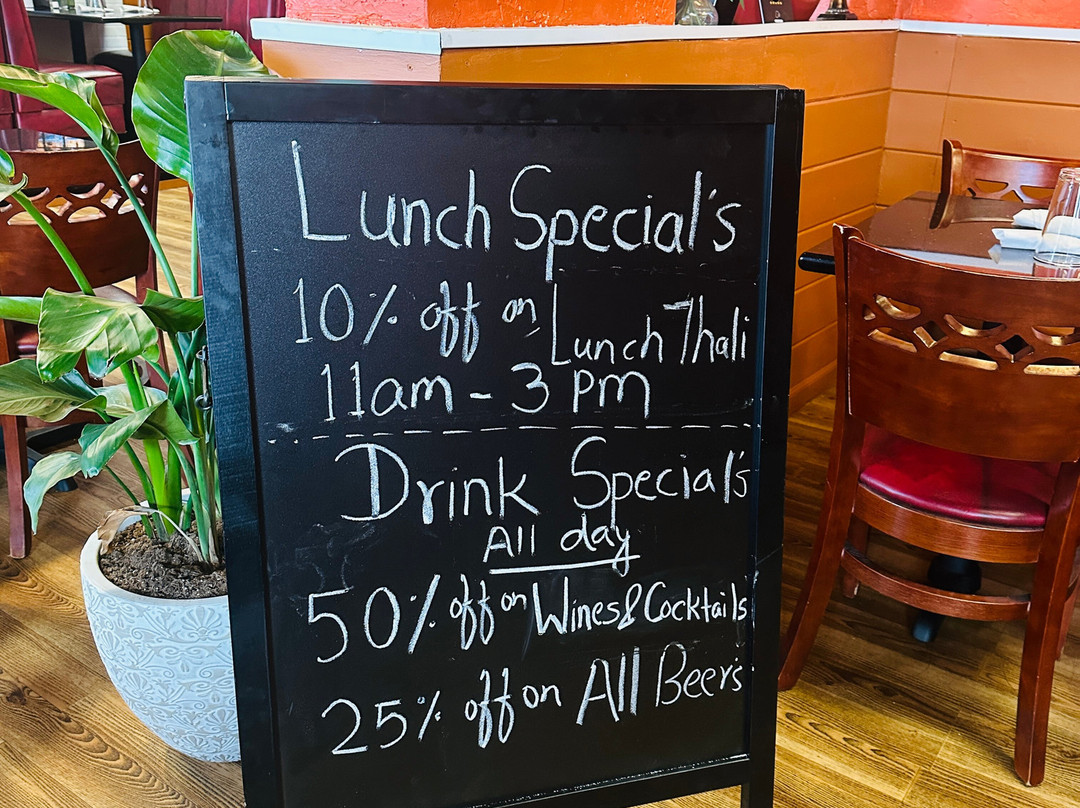 Lunch Special's
10% off on Lunch Thali
11am - 3 pm
Drink Special's
All day
50% off on Wines & Cocktails
25% off on All Beer's